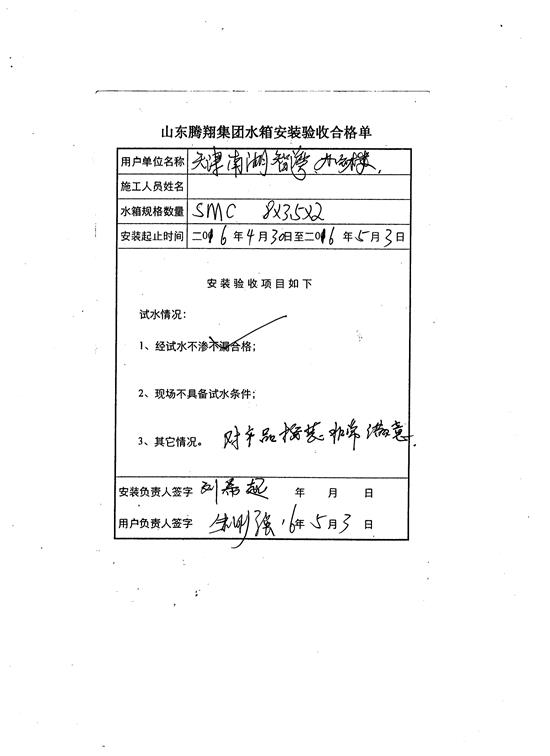 山东腾翔集团水箱安装验收合格单
用户单位名称 天津南湖智湾办公楼.
施工人员姓名
水箱规格数量 SMC 8X3.5X2
安装起止时间 二016年4月30日至二016年5月3日
安装验收项目如下
试水情况：
1、经试水不渗不漏合格；
2、现场不具备试水条件；
3、其它情况。 对产品 非常满意.
安装负责人签字 刘 起 年 月 日
用户负责人签字 朱 强 16年5月3日